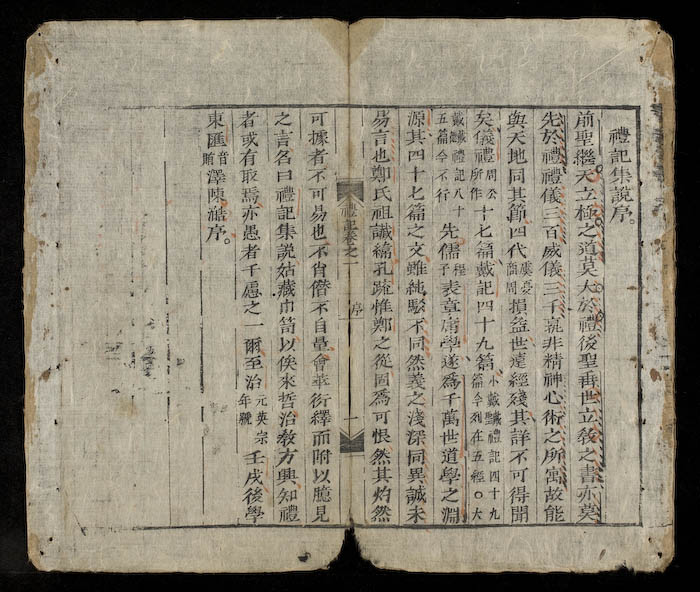 禮記集說序。
前聖繼天立極之道莫大於禮後聖垂世立敎之書亦莫
先於禮禮儀三百威儀三千孰非精神心術之所寓故能
與天地同其節四代虞夏商周損益世遠經殘其詳不可得聞
矣儀禮周公所作十七篇戴記四十九篇小戴聖禮記四十九篇今列在五經〇大
戴德禮記八十五篇今不行先儒程子表章庸學遂爲千萬世道學之淵
源其四十七篇之文雖純駁不同然義之淺深同異誠未
易言也鄭氏祖讖緯孔疏惟鄭之從固爲可恨然其灼然
禮記卷之一 序 一
可據者不可易也不肖僭不自量會萃衍繹而附以臆見
之言名曰禮記集說姑藏巾笥以俟來哲治敎方興知禮
者或有取焉亦愚者千慮之一爾至治元英宗年號壬戌後學
東匯音賄澤陳澔序。